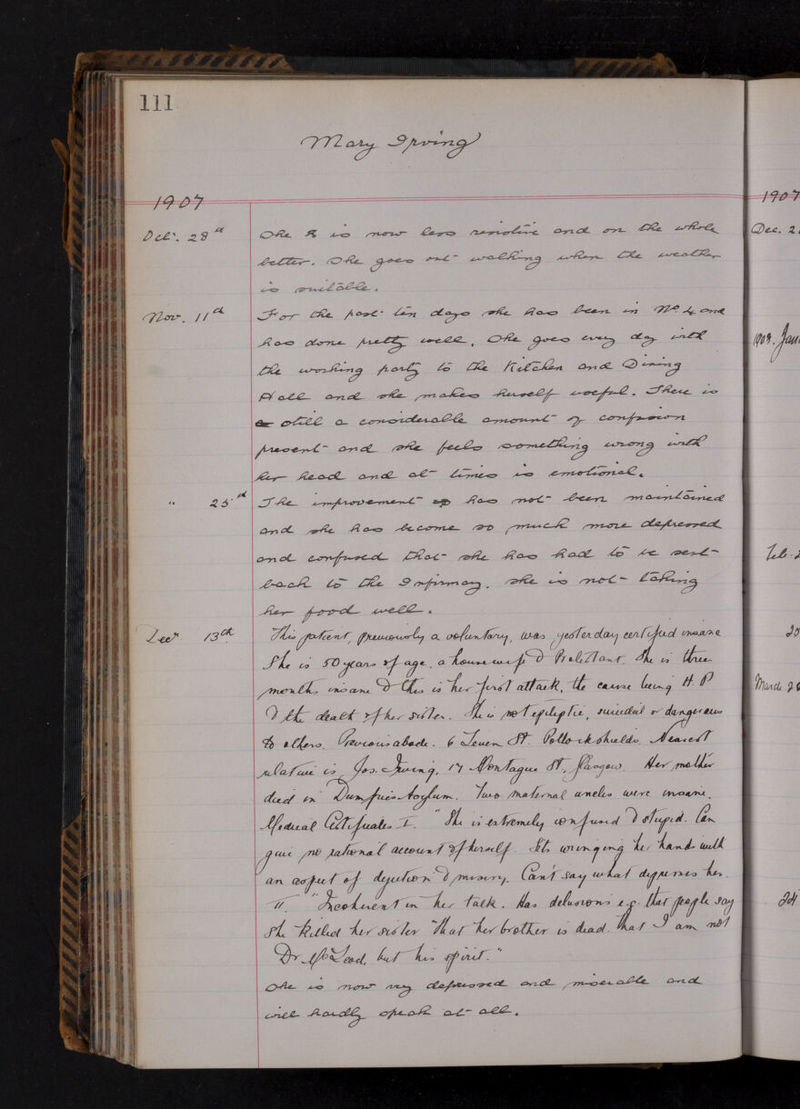 111
Mary Irving
1907
Oct. 28th She is now less resistive and on the whole
better. She goes out walking when the weather
is suitable.
Nov. 11th For the past ten days she has been in No 4 and
has done pretty well. She goes every day with
the working party to the Kitchen and Dining
Hall and she makes herself useful. There is
still a considerable amount of confusion
present and she feels something wrong with
her head and at times is emotional.
" 25th The improvement has not been maintained
and she has become so much more depressed
and confused that she has had to be sent
back to the Infirmary. She is not taking
her food well.
Decr 13th This patient, previously a voluntary, was yesterday certified insane
She is 50 years of age, a housewife & Protestant. She is three
months insane & this is her first attack, the cause being H.P
& the death of her sister. She is not epileptic, suicidal or dangerous
to others. Previous abode. 6 Leven St. Pollokshields. Nearest
relative is Jos. Irving, 17 Montague St, Glasgow. Her mother
died in Dumfries Asylum. Two maternal uncles were insane.
Medical Certificates I. "She is extremely confused & stupid. Can
give no rational account of herself. Sits wringing her hands with
an aspect of dejection & misery. Can't say what depresses her.
II. "Incoherent in her talk. Has delusions e.g. that people say
she killed her sister "that her brother is dead. that I am not
Dr McLeod, but his spirit."
She is now very depressed and miserable and
will hardly speak at all.
1907
Dec. 2
1908. Jan
Feb. 2
March 26
24